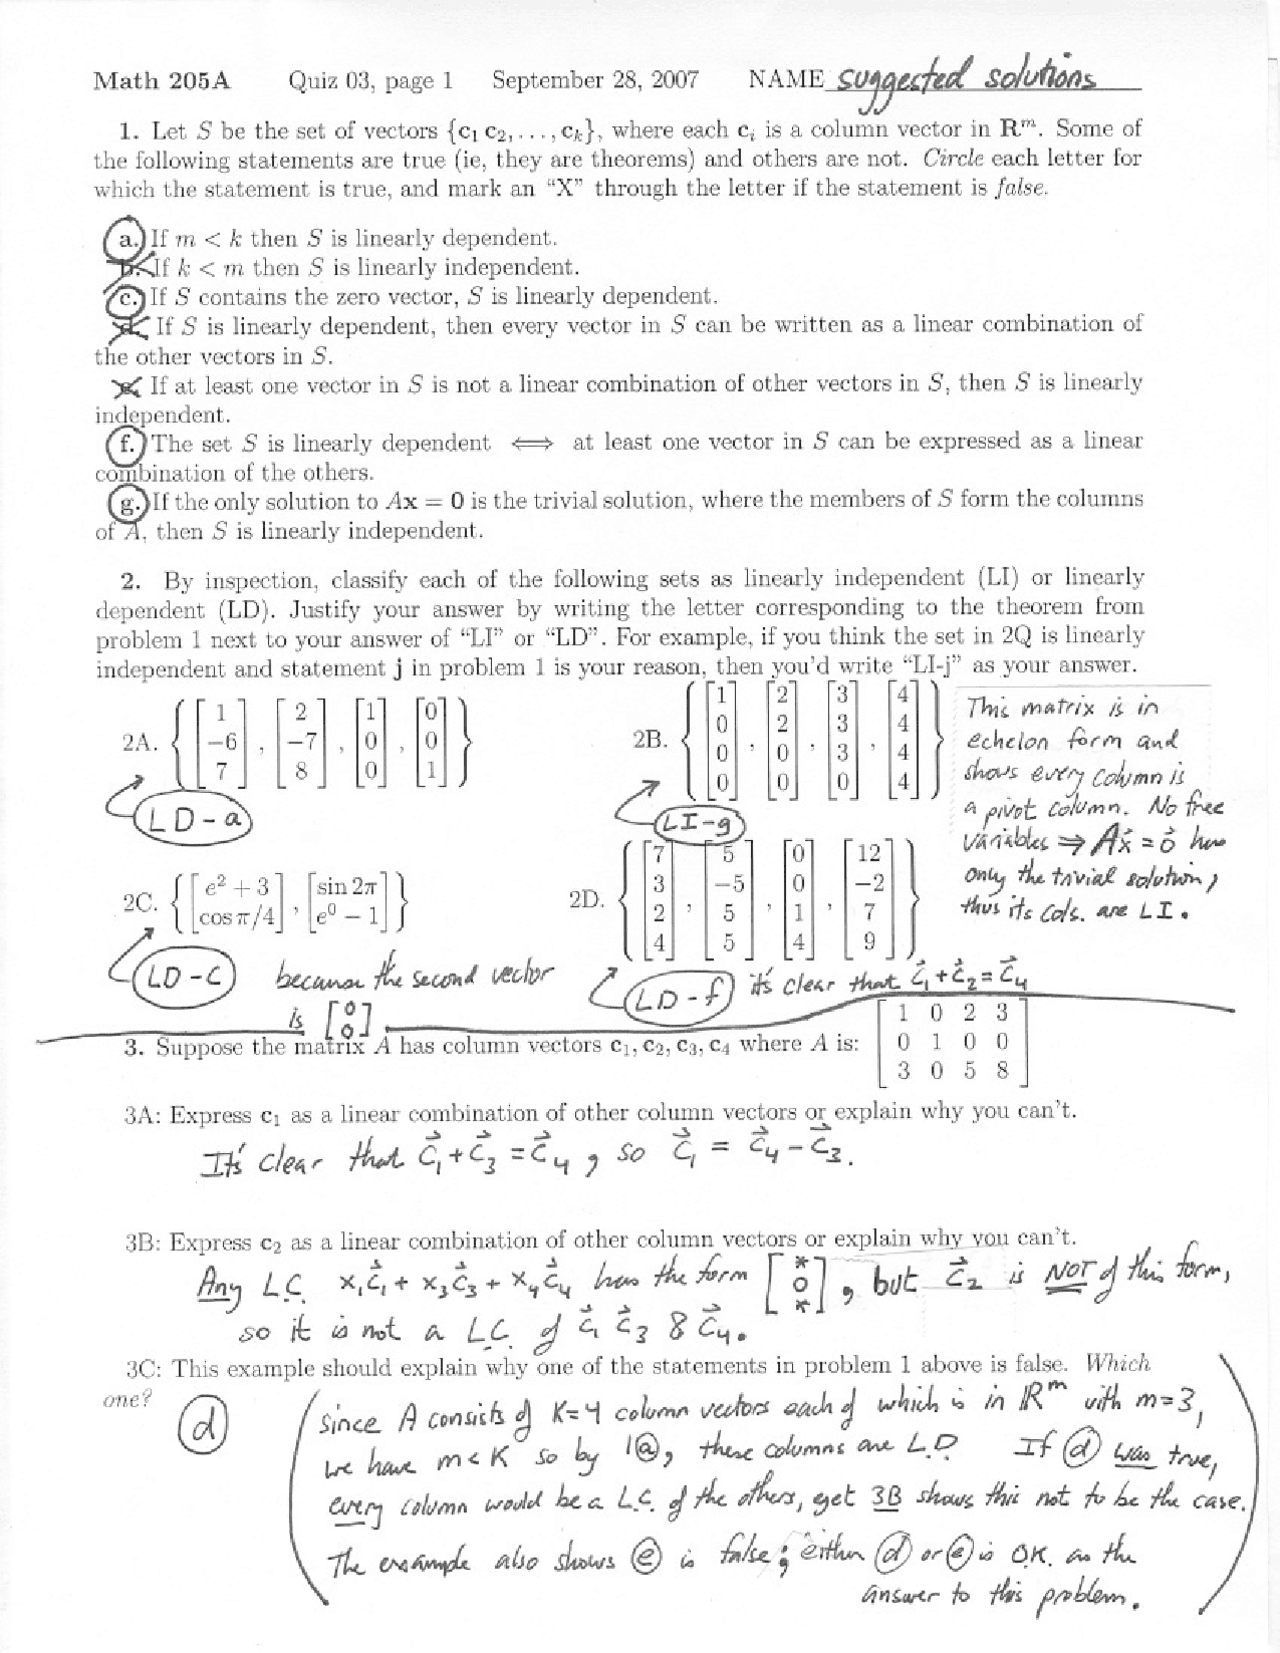 Math 205A Quiz 03, page 1 September 28, 2007 NAME suggested solutions
1. Let S be the set of vectors {c₁ c₂, . . . , cₖ}, where each cᵢ is a column vector in Rᵐ. Some of
the following statements are true (ie, they are theorems) and others are not. Circle each letter for
which the statement is true, and mark an "X" through the letter if the statement is false.
a. If m < k then S is linearly dependent.
b. If k < m then S is linearly independent.
c. If S contains the zero vector, S is linearly dependent.
d. If S is linearly dependent, then every vector in S can be written as a linear combination of
the other vectors in S.
If at least one vector in S is not a linear combination of other vectors in S, then S is linearly
independent.
f. The set S is linearly dependent ⟺ at least one vector in S can be expressed as a linear
combination of the others.
g. If the only solution to Ax = 0 is the trivial solution, where the members of S form the columns
of A, then S is linearly independent.
2. By inspection, classify each of the following sets as linearly independent (LI) or linearly
dependent (LD). Justify your answer by writing the letter corresponding to the theorem from
problem 1 next to your answer of "LI" or "LD". For example, if you think the set in 2Q is linearly
independent and statement j in problem 1 is your reason, then you'd write "LI-j" as your answer.
2A. {[1 -6 7], [2 -7 8], [1 0 0], [0 0 1]}
LD-a
2B. {[1 0 0 0], [2 2 0 0], [3 3 3 0], [4 4 4 4]}
LI-g
This matrix is in
echelon form and
shows every column is
a pivot column. No free
variables ⇒ Ax⃗ = 0⃗ has
only the trivial solution,
thus its cols. are LI.
2C. {[e² + 3 cos π/4], [sin 2π e⁰ − 1]}
LD-c because the second vector
is [0 0].
2D. {[7 3 2 4], [5 -5 5 5], [0 0 1 4], [12 -2 7 9]}
LD-f it's clear that c⃗₁ + c⃗₂ = c⃗₄
3. Suppose the matrix A has column vectors c₁, c₂, c₃, c₄ where A is:
1 0 2 3
0 1 0 0
3 0 5 8
3A: Express c₁ as a linear combination of other column vectors or explain why you can't.
It's clear that c⃗₁ + c⃗₃ = c⃗₄, so c⃗₁ = c⃗₄ − c⃗₃.
3B: Express c₂ as a linear combination of other column vectors or explain why you can't.
Any L.C. x₁c⃗₁ + x₃c⃗₃ + x₄c⃗₄ has the form [* 0 *], but c⃗₂ is NOT of this form,
so it is not a L.C. of c⃗₁ c⃗₃ & c⃗₄.
3C: This example should explain why one of the statements in problem 1 above is false. Which
one?
d
(since A consists of K=4 column vectors each of which is in ℝᵐ with m=3,
we have m<K so by 1ⓐ, these columns are L.D. If ⓓ was true,
every column would be a L.C. of the others, yet 3B shows this not to be the case.
The example also shows ⓔ is false; either ⓓ or ⓔ is OK. as the
answer to this problem.)